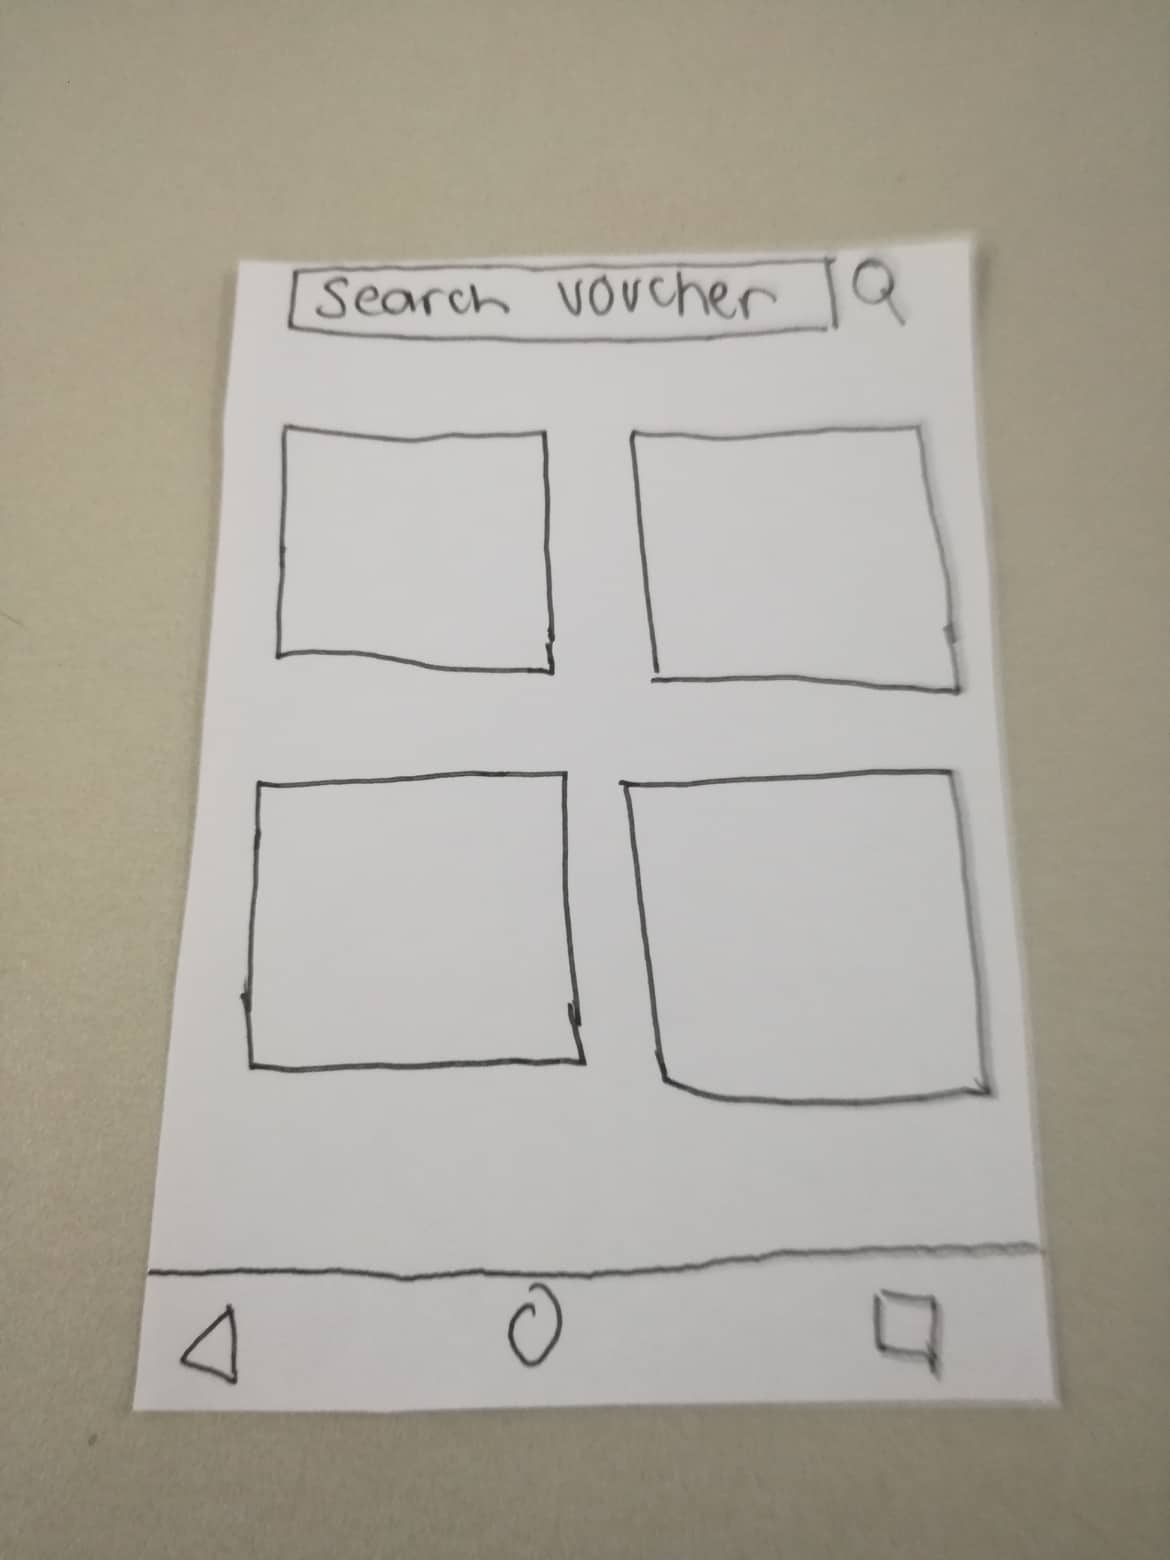 Search voucher